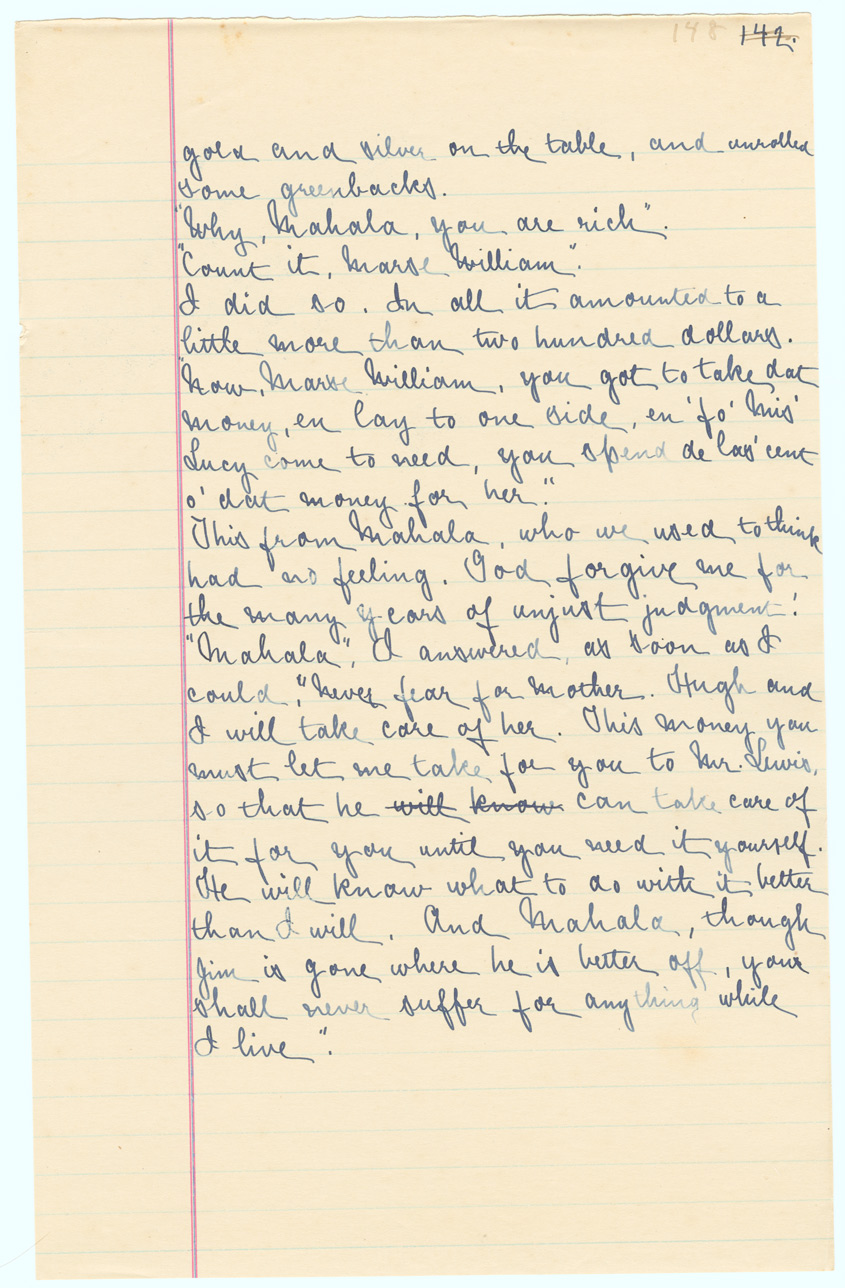 148 142.
gold and silver on the table, and unrolled
some greenbacks.
"Why, Mahala, you are rich".
"Count it, Marse William".
I did so. In all it amounted to a
little more than two hundred dollars.
"Now, Marse William, you got to take dat
money, en lay to one side, en 'fo' Mis'
Lucy come to need, you spend de las' cent
o' dat money for her."
This from Mahala, who we used to think
had no feeling. God forgive me for
the many years of unjust judgment!
"Mahala", I answered, as soon as I
could, "Never fear for mother. Hugh and
I will take care of her. This money you
must let me take for you to Mr. Lewis,
so that he will know can take care of
it for you until you need it yourself.
He will know what to do with it better
than I will. And Mahala, though
Jim is gone where he is better off, your
shall never suffer for anything while
I live".